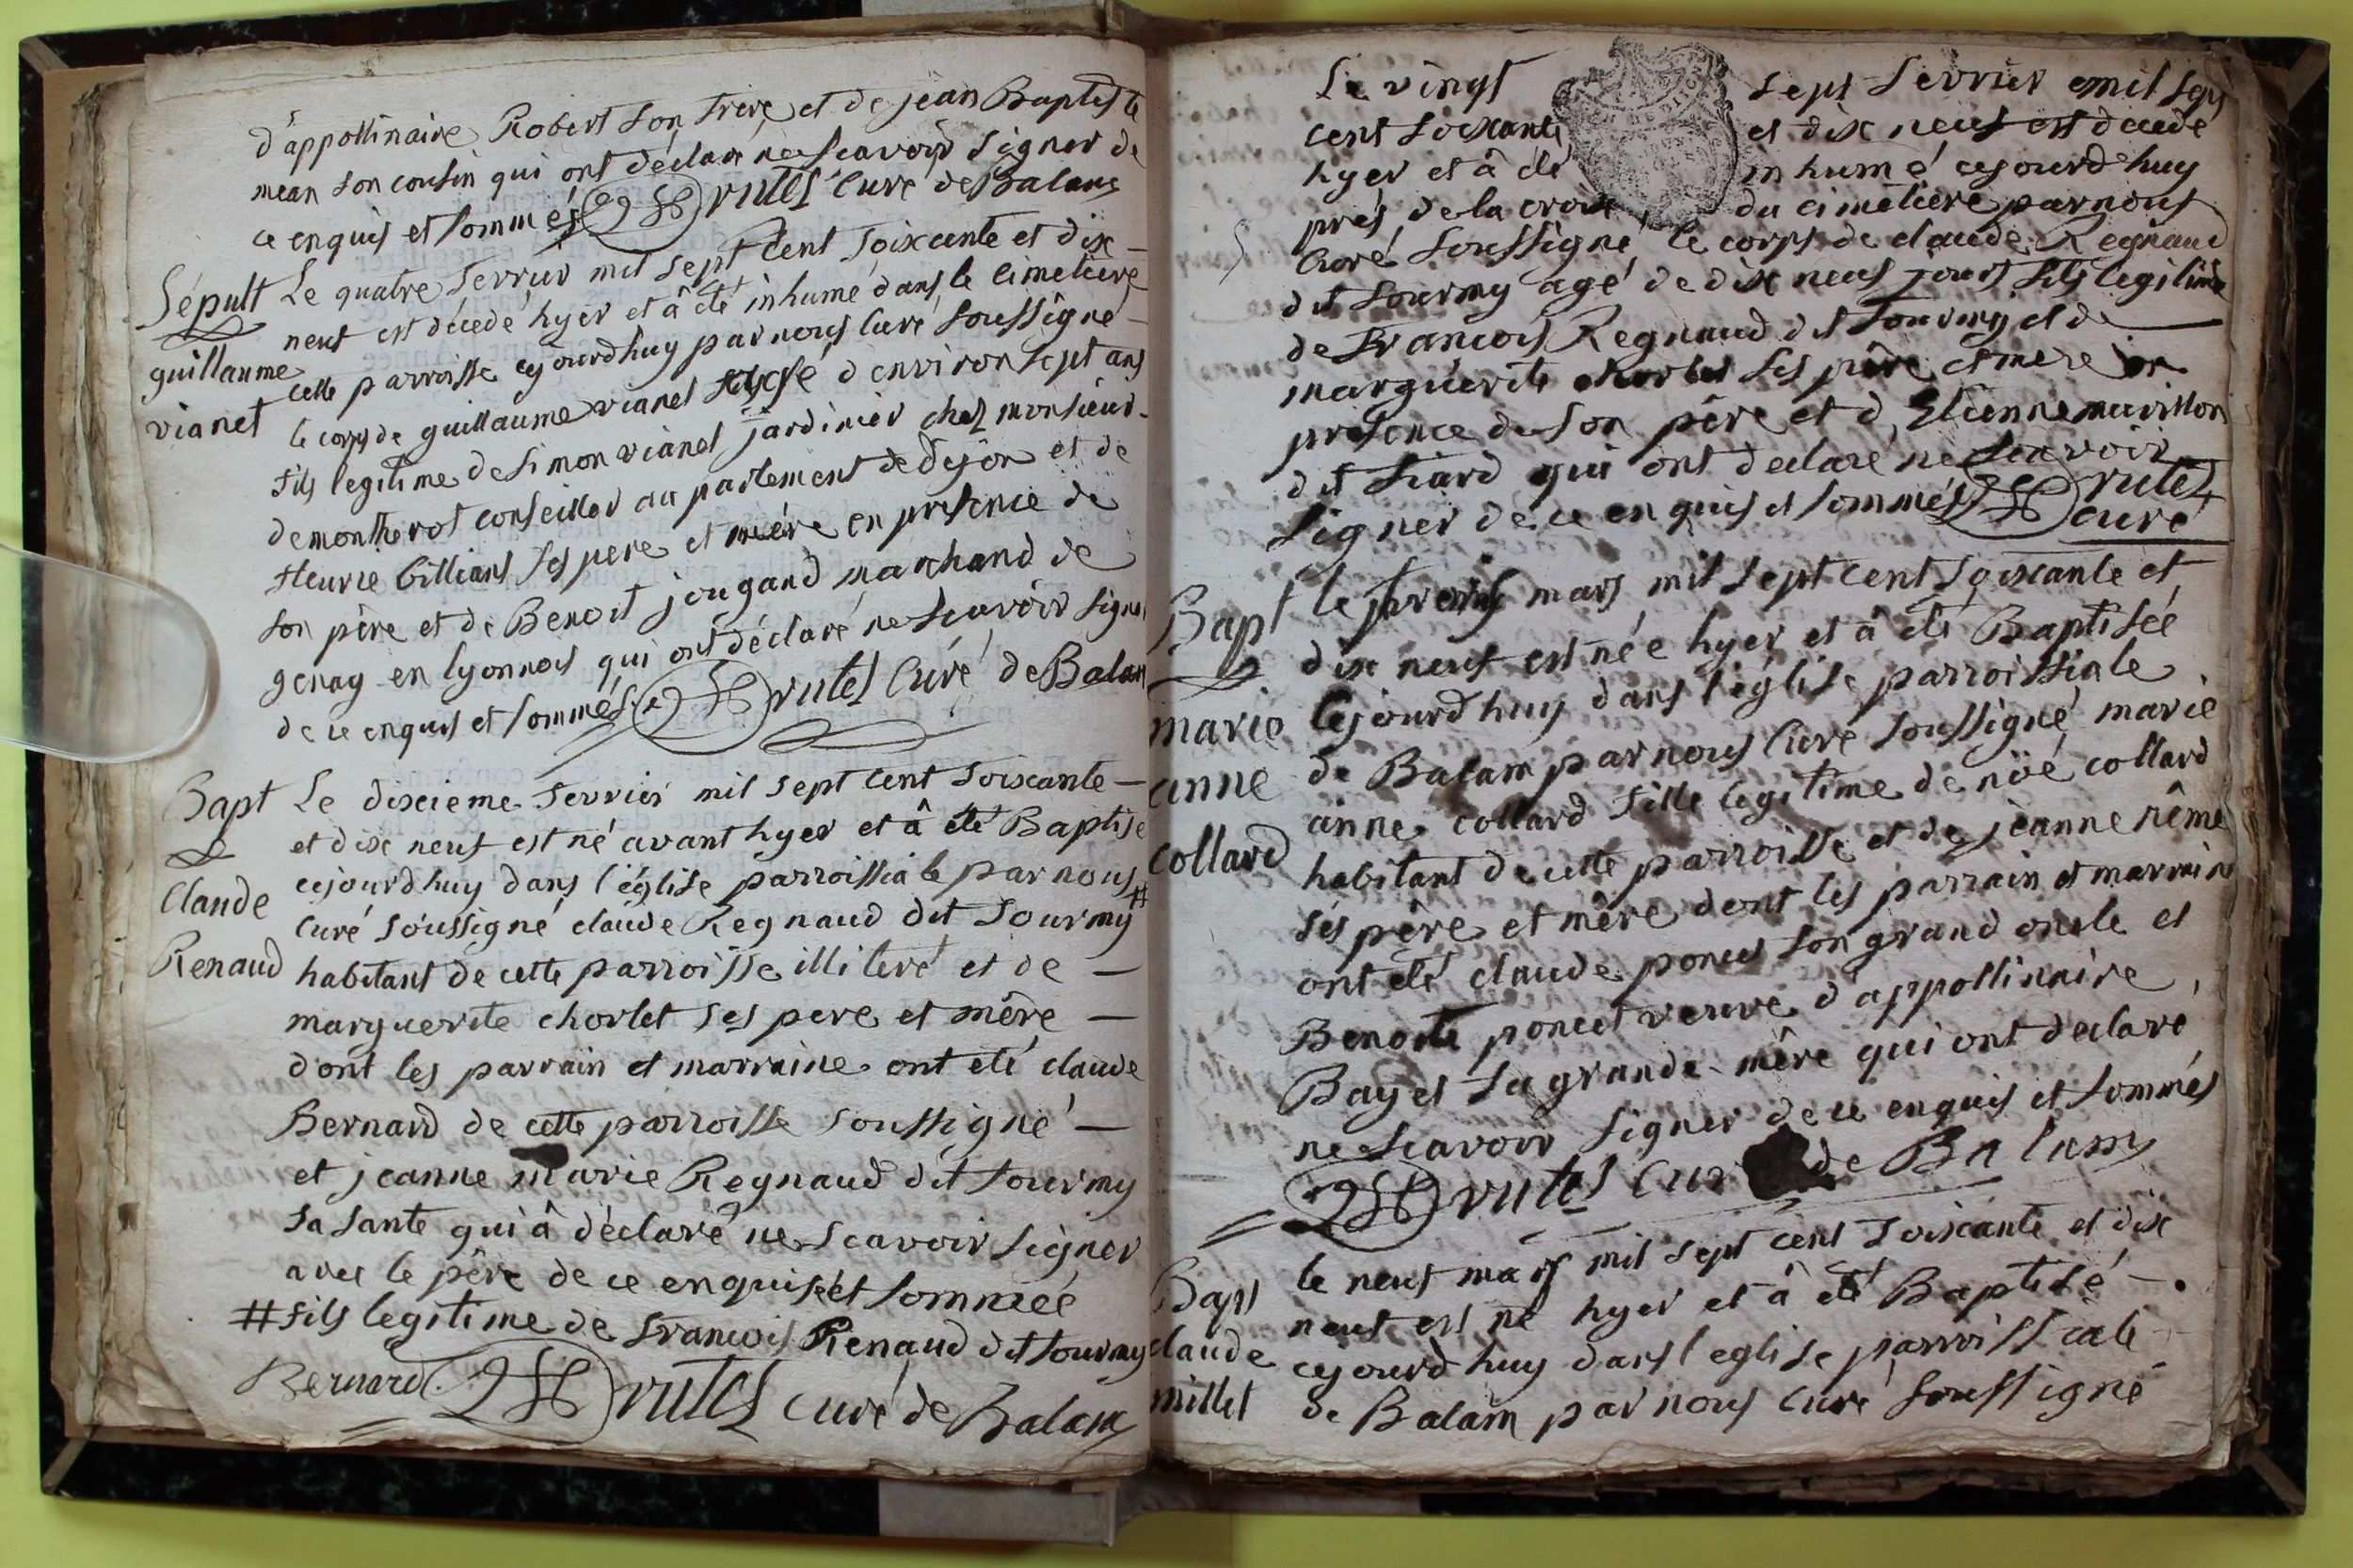 d'appollinaire Robert son frere et de jean Baptiste
mean son cousin qui ont déclaré ne scavoir signer de
ce enquis et sommés Drutel Curé de Balans
Sépult Le quatre fevrier mil sept cent soixcente et dix
neuf est décédé hyer et â été inhumé dans le cimetiere
guillaume cette parroisse cejourdhuy par nous curé soussigné
vianet le corps de guillaume vianet agé d'environ sept ans
fils legitime de simon vianet jardinier chez monsieur
demontherot conseiller au parlement de Dijon et de
fleurie billiant ses pere et mére en présence de
son pére et de Benoit jougand marchand de
genay en lyonnois qui ont déclaré ne scavoir signer
de ce enquis et sommés Drutel Curé de Balan
Bapt Le dixieme fevrier mil sept cent soixante
et dix neuf est né avant hyer et â été Baptise
cejourdhuy dans l'église parroissiale par nous
Claude curé soussigné claude Regnaud dit sourmy #
Renaud habitant de cette parroisse illiteré et de
marguerite chorlet ses pere et mére
dont les parrain et marraine ont eté claude
Bernard de cette parroisse soussigné
et jeanne marie Regnaud dit sourmy
sa tante qui â déclaré ne scavoir signer
avec le pére de ce enquis et sommée
# fils legitime de francois Renaud dit sourmy
Bernard Drutel curé de Balan
Le vingt sept fevrier mil sept
cent soixante et dix neuf est decedé
hyer et â été inhumé cejourdhuy
prés de la croix du cimetiere par nous
Curé soussigné le corps de claude Regnaud
dit sourmy agé de dix neuf jours fils legitime
de francois Regnaud dit sourmy et de
marguerite chorlet ses pére et mere en
présence de son pére et d'Etienne
dit siard qui ont declaré ne scavoir
signer de ce enquis et sommés Drutel
curé
Bapt le premier mars mil sept cent soixante et
dix neuf est née hyer et â été Baptisée
marie cejourdhuy dans l'église parroissiale
anne de Balam par nous Curé soussigné marie
collard anne collard fille legitime de noé collard
habitant de cette parroisse et de jeanne réme
ses pére et mére dont les parrain et marraine
ont eté claude poncet son grand oncle et
Benoite poncet veuve d'appollinaire
Bayet sa grande mére qui ont declaré
ne scavoir signer de ce enquis et sommés
Drutel Curé de Balam
Bapt le neuf mars mil sept cent soixante et dix
neuf est né hyer et â été Baptisé
claude cejourdhuy dans l'eglise parroissiale
millet de Balam par nous Curé soussigné